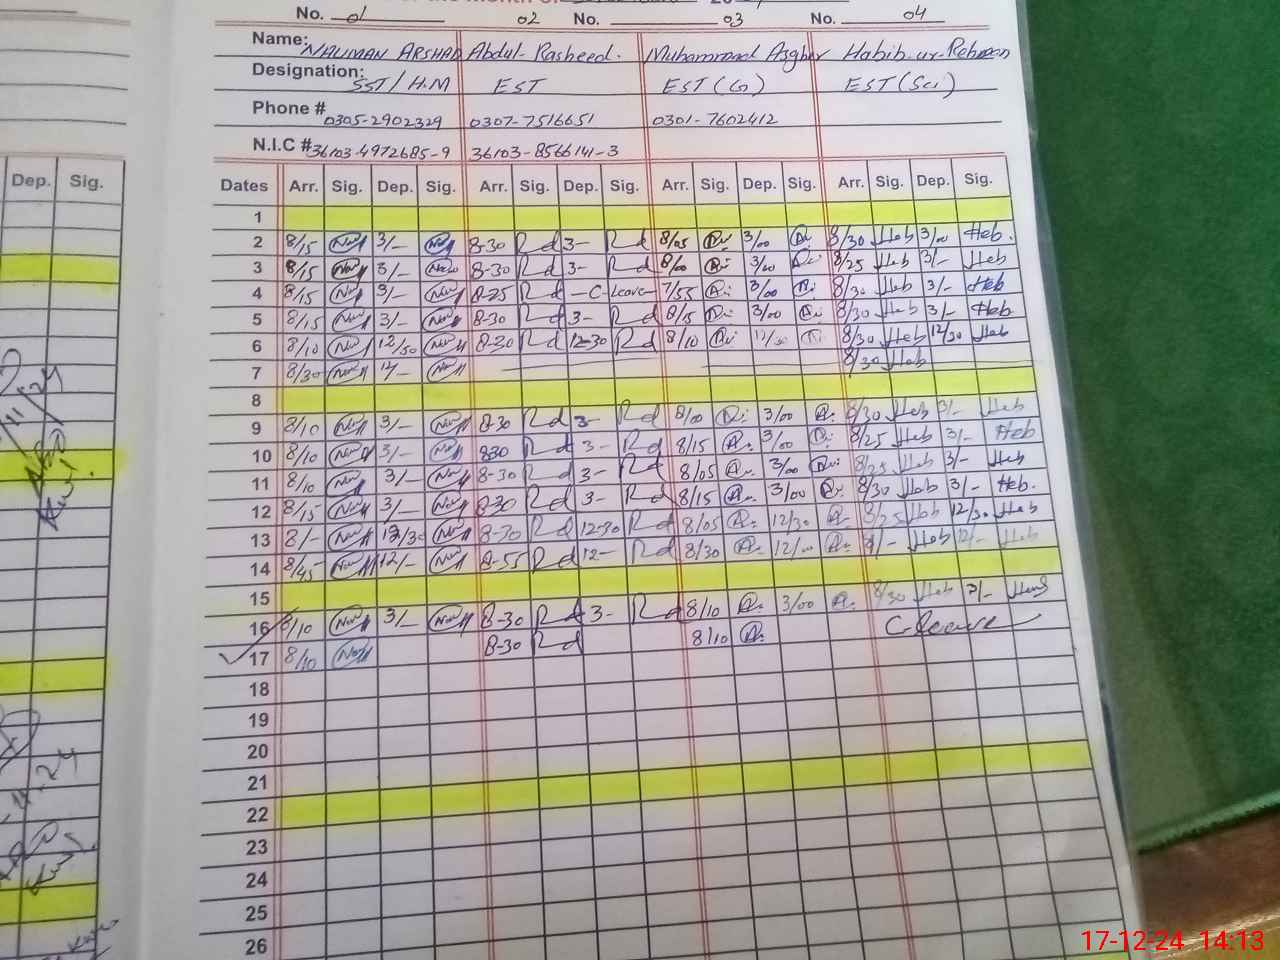 No. 01 02 No. 03 No. 04
Name: NAUMAN ARSHAD Abdul-Rasheed. Muhammad Asghar Habib-ur-Rehman
Designation: SST/H.M EST EST (G) EST (Sci)
Phone # 0305-2902329 0307-7516651 0301-7602412
N.I.C # 36103-4972685-9 36103-8566141-3
Dep. Sig.
Dates Arr. Sig. Dep. Sig. Arr. Sig. Dep. Sig. Arr. Sig. Dep. Sig. Arr. Sig. Dep. Sig.
1
2 8/15 3/- 8-30 Rd 3- Rd 8/05 3/00 8/30 Heb 3/00 Heb.
3 8/15 3/- 8-30 Rd 3- Rd 8/00 3/00 8/25 Heb 3/- Heb
4 8/15 3/- 8-25 Rd -C-Leave- 7/55 3/00 8/30 Heb 3/- Heb
5 8/15 3/- 8-30 Rd 3- Rd 8/15 3/00 8/30 Heb 3/- Heb
6 8/10 12/30 8-30 Rd 12-30 Rd 8/10 12/30 8/30 Heb 12/30 Heb
7 8/30 12/- 8/30 Heb
8
9 8/10 3/- 8-30 Rd 3- Rd 8/00 3/00 8/30 Heb 3/- Heb
10 8/10 3/- 830 Rd 3- Rd 8/15 3/00 8/25 Heb 3/- Heb
11 8/10 3/- 8-30 Rd 3- Rd 8/05 3/00 8/25 Heb 3/- Heb
12 8/15 3/- 8-30 Rd 3- Rd 8/15 3/00 8/30 Heb 3/- Heb.
13 8/- 12/30 8-30 Rd 12-30 Rd 8/05 12/30 8/25 Heb 12/30 Heb
14 8/45 12/- 8-55 Rd 12- Rd 8/30 12/00 Heb 12/- Heb
15
16 8/10 3/- 8-30 Rd 3- Rd 8/10 3/00 8/30 Heb 3/- Heb
17 8/10 8-30 Rd 8/10 C-leave
18
19
20
21
22
23
24
25
26
17-12-24 14:13